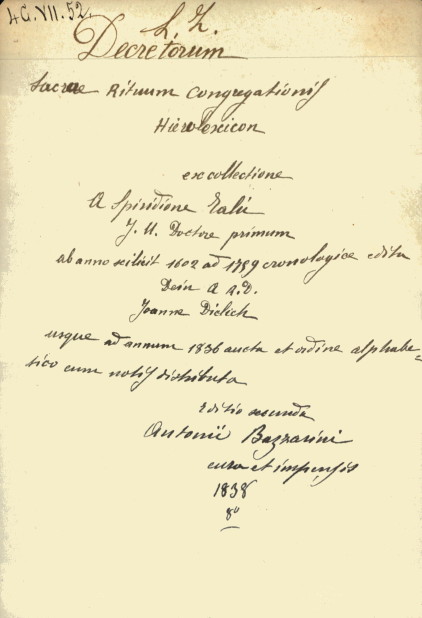 4C.VII.52.
L. Z.
Decretorum
Sacrae Rituum Congregationis
Hierolexicon
ex collectione
A Spiridione Talù
J. U. Doctore primum
ab anno scilicit 1602 ad 1789 cronologice edita
Dein a A.D.
Joanne Diclich
usque ad annum 1836 aucta et ordine alphabe=
tico cum notis distributa
Editio secunda
Antonii Bazzarini
cura et impensis
1838
8º